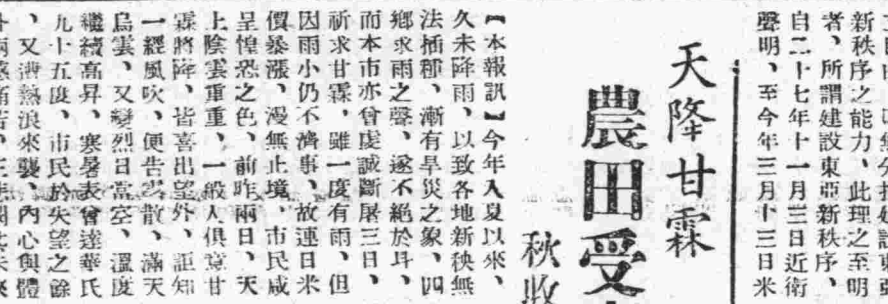 新秩序之能力、此理之至明
者、所謂建設東亞新秩序、
自二十七年十一月三日近衛
聲明、至今年三月十三日米
天降甘霖
農田受
秋收
【本報訊】今年入夏以來、
久未降雨、以致各地新秧無
法插種、漸有旱災之象、四
鄉求雨之聲、遂不絕於耳、
而本市亦曾虔誠斷屠三日、
祈求甘霖、雖一度有雨、但
因雨小仍不濟事、故連日米
價暴漲、漫無止境、市民咸
呈惶恐之色、前昨兩日、天
上陰雲重重、一般人俱意甘
霖將降、皆喜出望外、詎知
一經風吹、便告雲散、滿天
烏雲、又變烈日當空、溫度
繼續高昇、寒暑表曾達華氏
九十五度、市民於失望之餘
、又遭熱浪來襲、內心與體